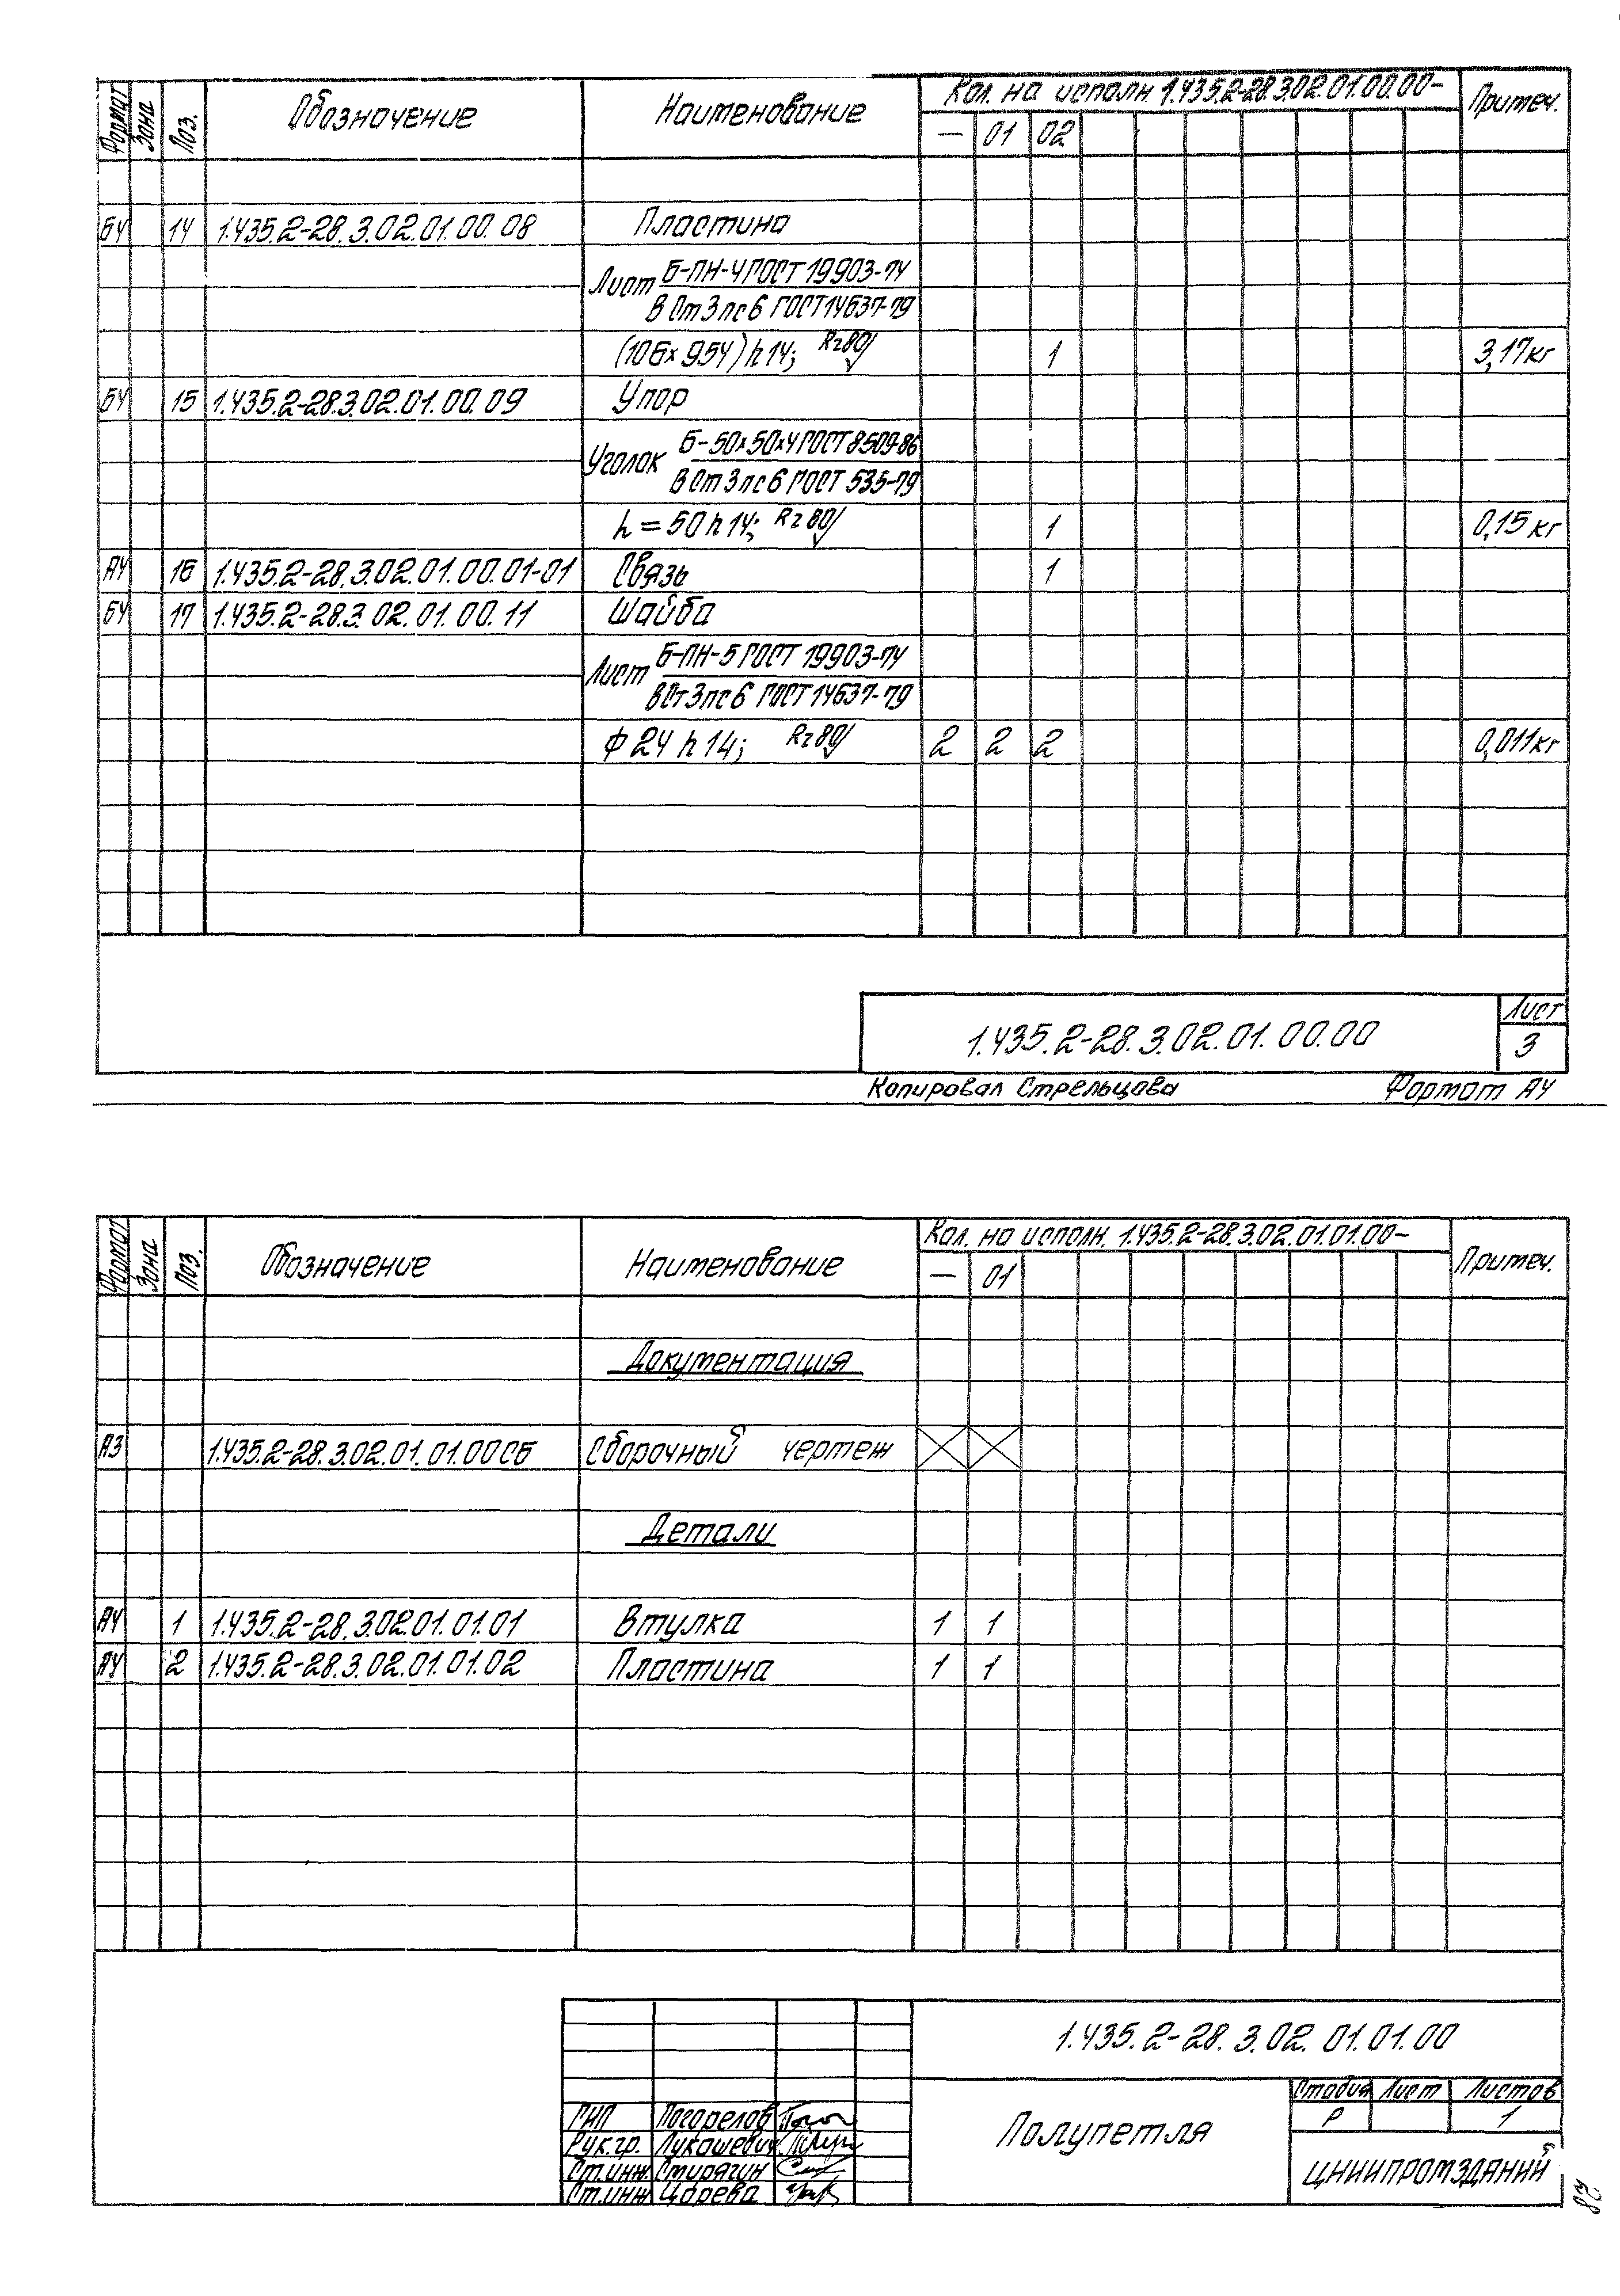 Формат Зона Поз. Обозначение Наименование Кол. на исполн 1.435.2-28.3.02.01.00.00- Примеч.
— 01 02
БЧ 14 1.435.2-28.3.02.01.00.08 Пластина
Лист Б-ПН-4 ГОСТ 19903-74
ВСт3пс6 ГОСТ 14637-79
(106×954) h14; Rz80 1 3,17кг
БЧ 15 1.435.2-28.3.02.01.00.09 Упор
Уголок Б-50×50×4 ГОСТ 8509-86
ВСт3пс6 ГОСТ 535-79
h=50h14; Rz80 1 0,15кг
А4 16 1.435.2-28.3.02.01.00.01-01 Связь 1
БЧ 17 1.435.2-28.3.02.01.00.11 Шайба
Лист Б-ПН-5 ГОСТ 19903-74
ВСт3пс6 ГОСТ 14637-79
ф24 h14; Rz80 2 2 2 0,011кг
1.435.2-28.3.02.01.00.00
Лист
3
Копировал Стрельцова Формат А4
Формат Зона Поз. Обозначение Наименование Кол. на исполн. 1.435.2-28.3.02.01.01.00- Примеч.
— 01
Документация
А3 1.435.2-28.3.02.01.01.00СБ Сборочный чертеж
Детали
А4 1 1.435.2-28.3.02.01.01.01 Втулка 1 1
А4 2 1.435.2-28.3.02.01.01.02 Пластина 1 1
1.435.2-28.3.02.01.01.00
ГИП Погорелов
Рук.гр. Лукашевич
Ст.инж. Стирягин
Ст.инж Царева
Полупетля
Стадия Лист Листов
Р 1
ЦНИИПРОМЗДАНИЙ